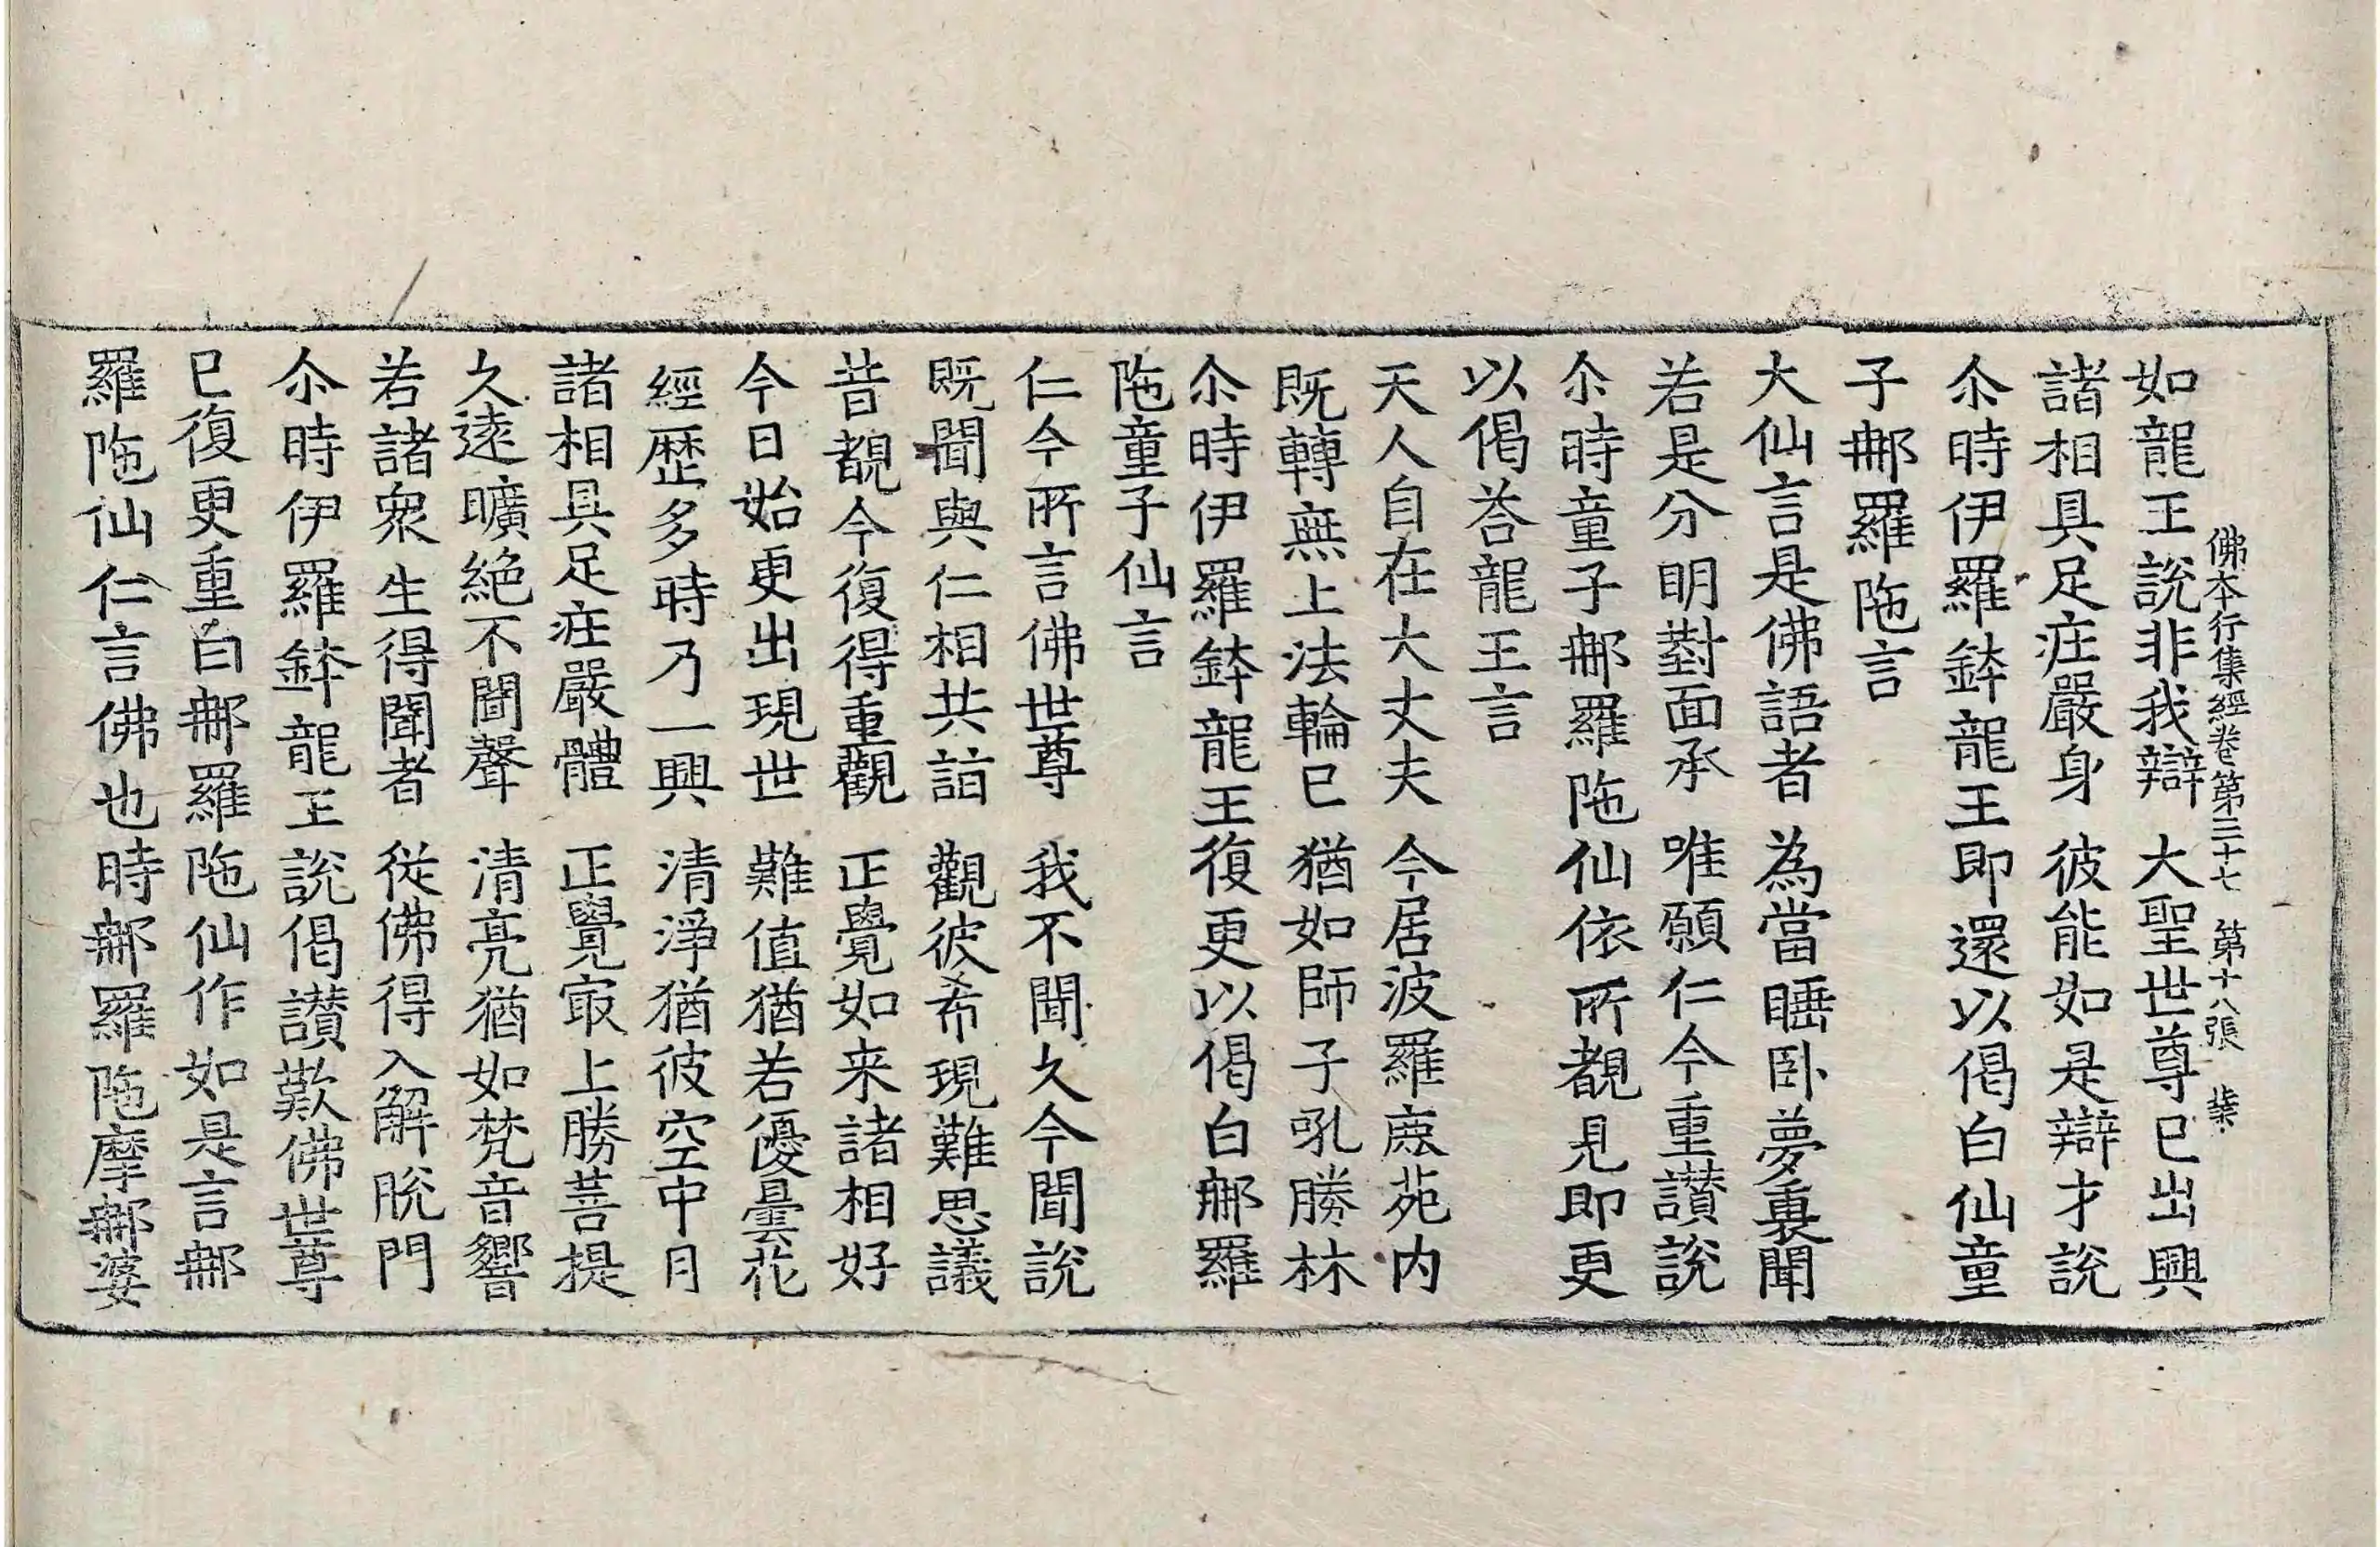 佛本行集經卷第三十七　第十八張　𣡸
如龍王說非我辯　大聖世尊已出興
諸相具足庄嚴身　彼能如是辯才說
尒時伊羅鉢龍王即還以偈白仙童
子𨚗羅陁言
大仙言是佛語者　為當睡卧夢裏聞
若是分明對面承　唯願仁今重讃說
尒時童子𨚗羅陁仙依所覩見即更
以偈荅龍王言
天人自在大丈夫　今居波羅鹿苑内
既轉無上法輪已　猶如師子吼勝林
尒時伊羅鉢龍王復更以偈白𨚗羅
陁童子仙言
仁今所言佛世尊　我不聞久今聞說
既聞與仁相共詣　觀彼希現難思議
昔覩今復得重觀　正覺如来諸相好
今日始更出現世　難值猶若優曇花
經歷多時乃一興　清淨猶彼空中月
諸相具足庄嚴體　正覺㝡上勝菩提
久遠曠絕不聞聲　清亮猶如梵音響
若諸衆生得聞者　從佛得入解脫門
尒時伊羅鉢龍王說偈讃歎佛世尊
已復更重白𨚗羅陁仙作如是言𨚗
羅陁仙仁言佛也時𨚗羅陁摩𨚗婆